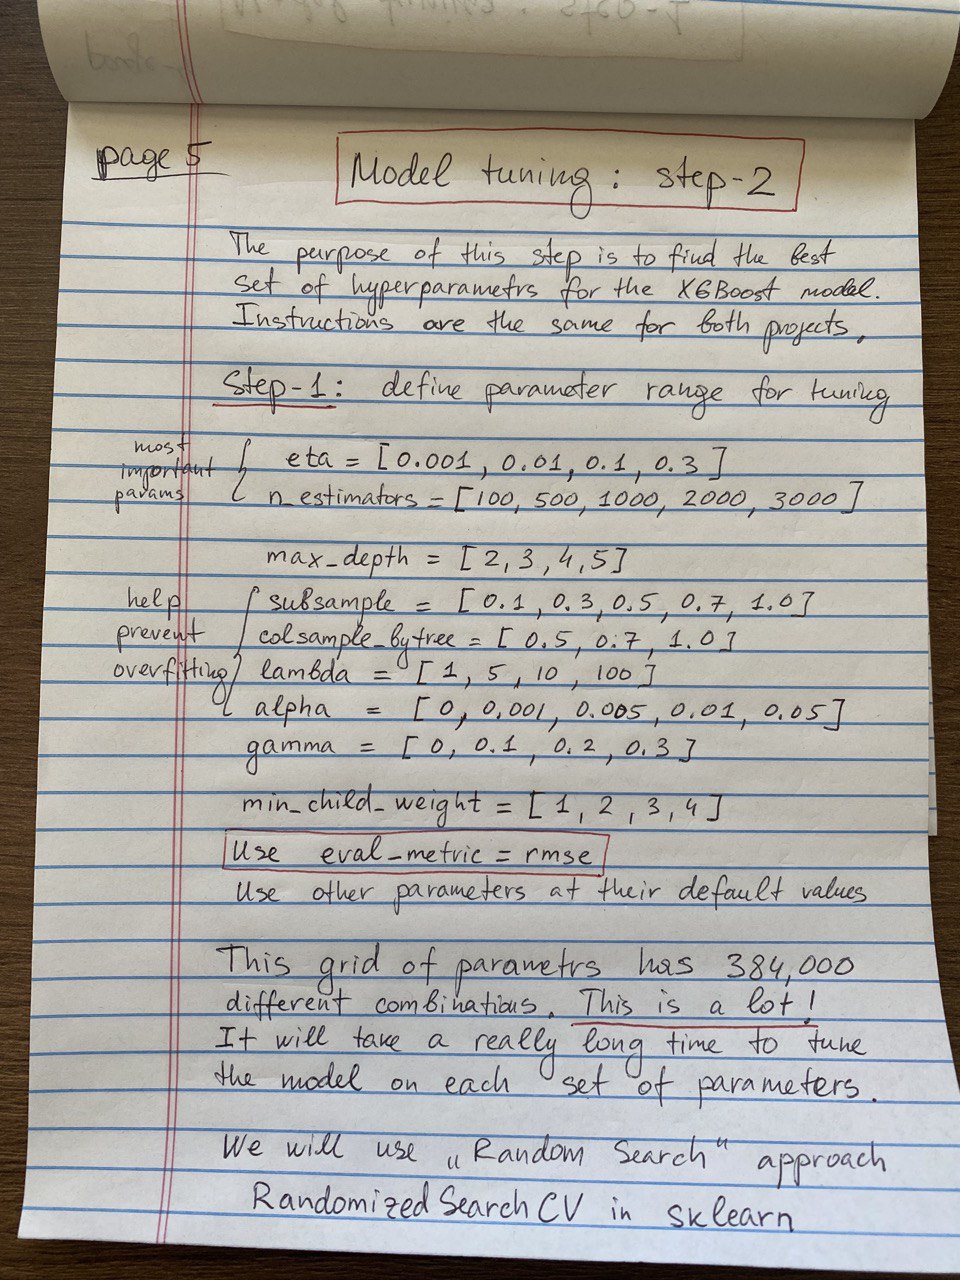 page 5
Model tuning: step-2
The purpose of this step is to find the best
set of hyperparametrs for the XGBoost model.
Instructions are the same for both projects.
Step-1: define parameter range for tuning
most
important
params
eta = [0.001, 0.01, 0.1, 0.3]
n_estimators = [100, 500, 1000, 2000, 3000]
max_depth = [2, 3, 4, 5]
help
prevent
overfitting
subsample = [0.1, 0.3, 0.5, 0.7, 1.0]
colsample_bytree = [0.5, 0.7, 1.0]
lambda = [1, 5, 10, 100]
alpha = [0, 0.001, 0.005, 0.01, 0.05]
gamma = [0, 0.1, 0.2, 0.3]
min_child_weight = [1, 2, 3, 4]
Use eval_metric = rmse
Use other parameters at their default values
This grid of parametrs has 384,000
different combinations. This is a lot!
It will take a really long time to tune
the model on each set of parameters.
We will use „Random Search“ approach
RandomizedSearchCV in sklearn